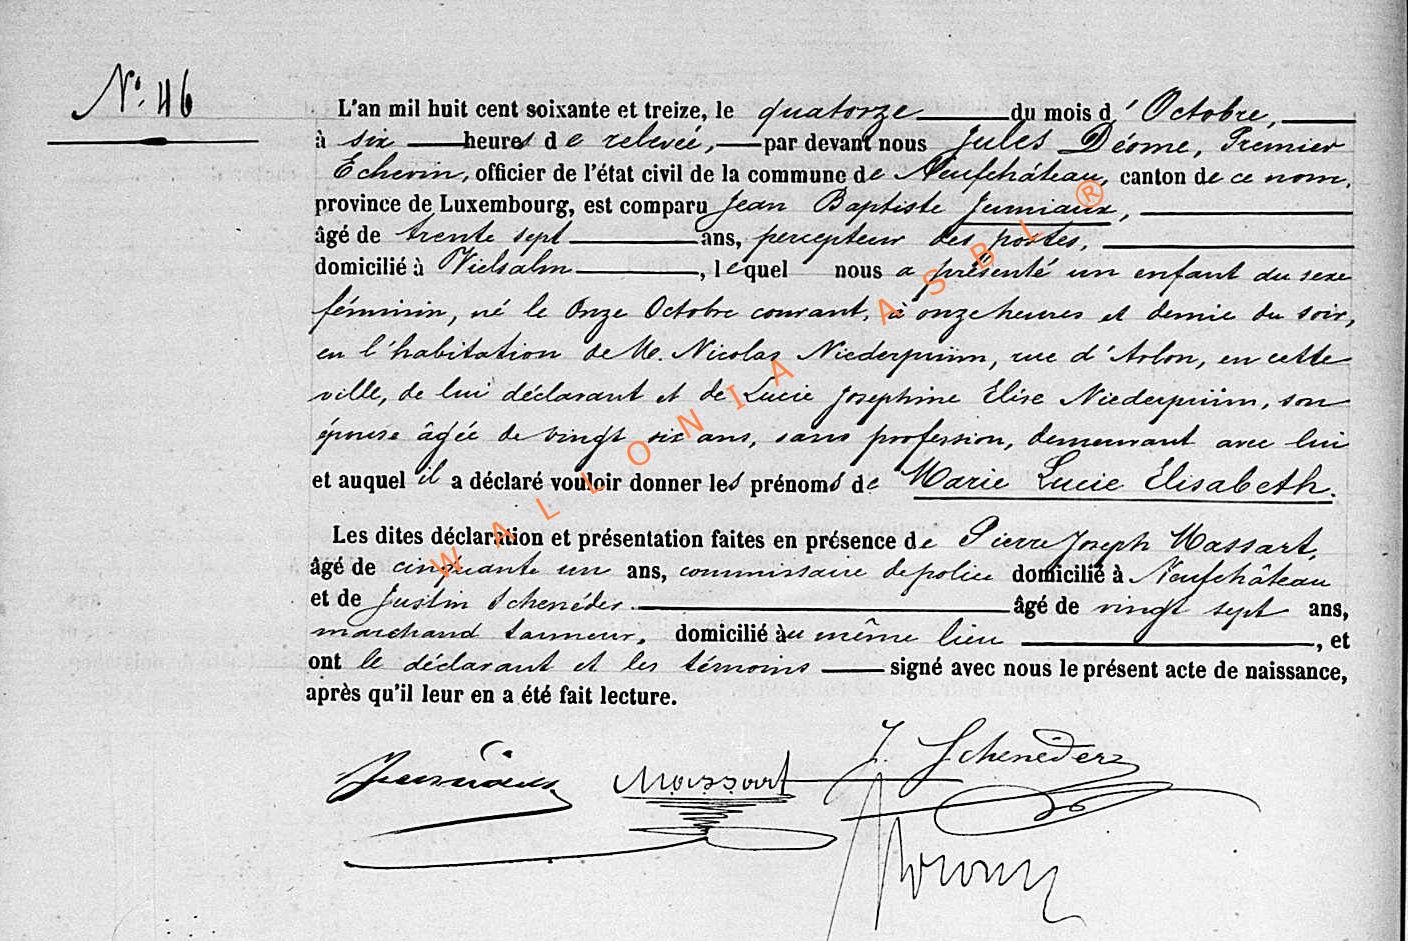 N° 46
L'an mil huit cent soixante et treize, le quatorze du mois d'Octobre,
à six heures de relevée, par devant nous Jules Déome, Premier
Echevin, officier de l'état civil de la commune de Neufchâteau, canton de ce nom,
province de Luxembourg, est comparu Jean Baptiste Jumiaux,
âgé de trente sept ans, percepteur des postes,
domicilié à Vielsalm, lequel nous a présenté un enfant du sexe
féminin, né le Onze Octobre courant, à onze heures et demie du soir,
en l'habitation de M. Nicolas Niederprüm, rue d'Arlon, en cette
ville, de lui déclarant et de Lucie Josephine Elise Niederprüm, son
épouse âgée de vingt six ans, sans profession, demeurant avec lui
et auquel il a déclaré vouloir donner les prénoms de Marie Lucie Elisabeth.
Les dites déclaration et présentation faites en présence de Pierre Joseph Massart,
âgé de cinquante un ans, commissaire de police domicilié à Neufchâteau
et de Justin Schenéder âgé de vingt sept ans,
marchand tanneur, domicilié au même lieu, et
ont le déclarant et les témoins signé avec nous le présent acte de naissance,
après qu'il leur en a été fait lecture.
J. Schenéder
Jumiaux Massart
WALLONIA ASBL ®